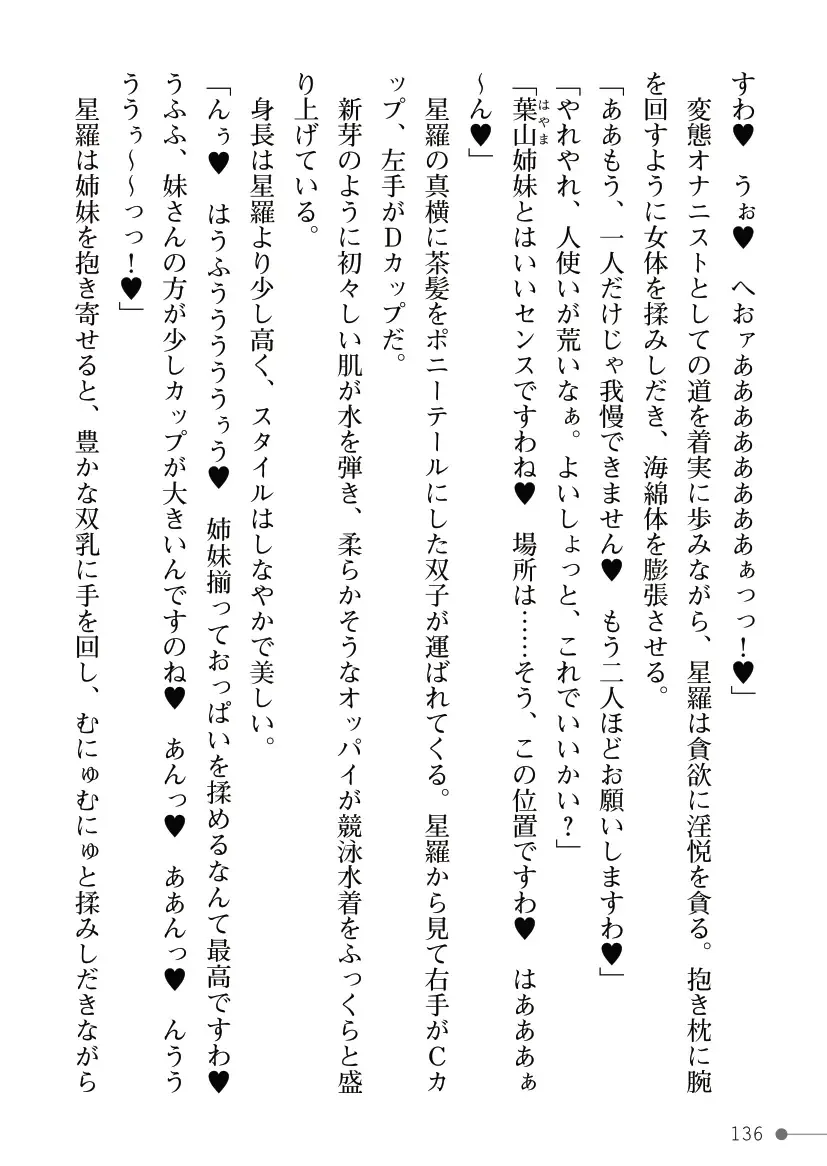 すわ♥　うぉ♥　へおァあああああああぁっっ！♥」
変態オナニストとしての道を着実に歩みながら、星羅は貪欲に淫悦を貪る。抱き枕に腕
を回すように女体を揉みしだき、海綿体を膨張させる。
「ああもう、一人だけじゃ我慢できません♥　もう二人ほどお願いしますわ♥」
「やれやれ、人使いが荒いなぁ。よいしょっと、これでいいかい？」
「葉山姉妹とはいいセンスですわね♥　場所は……そう、この位置ですわ♥　はあああぁ
はやま
～ん♥」
星羅の真横に茶髪をポニーテールにした双子が運ばれてくる。星羅から見て右手がＣカ
ップ、左手がＤカップだ。
新芽のように初々しい肌が水を弾き、柔らかそうなオッパイが競泳水着をふっくらと盛
り上げている。
身長は星羅より少し高く、スタイルはしなやかで美しい。
「んぅ♥　はうふうううううぅう♥　姉妹揃っておっぱいを揉めるなんて最高ですわ♥
うふふ、妹さんの方が少しカップが大きいんですのね♥　あんっ♥　ああんっ♥　んうう
ううぅ～～っっ！♥」
星羅は姉妹を抱き寄せると、豊かな双乳に手を回し、むにゅむにゅと揉みしだきながら
136